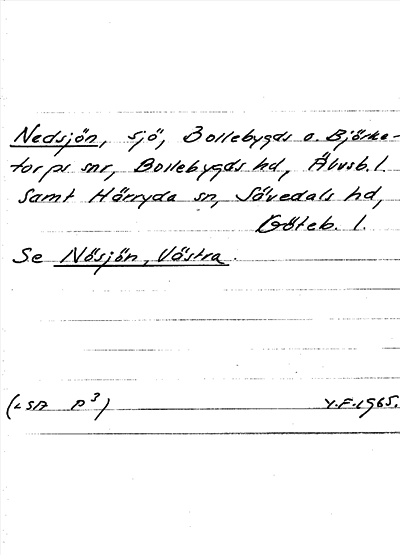 Nedsjön, sjö, Bollebygds o. Björke-
torps snr, Bollebygds hd, Älvsb. l.
samt Härryda sn, Sävedals hd,
Göteb. l.
Se Näsjön, Västra.
(LSA P3)
Y.F. 1965.